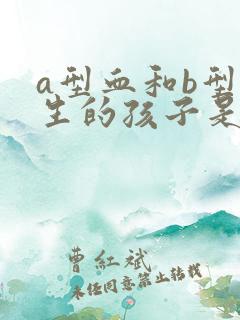 a型血和b型
生的孩子是
曹红斌
未经同意禁止转载